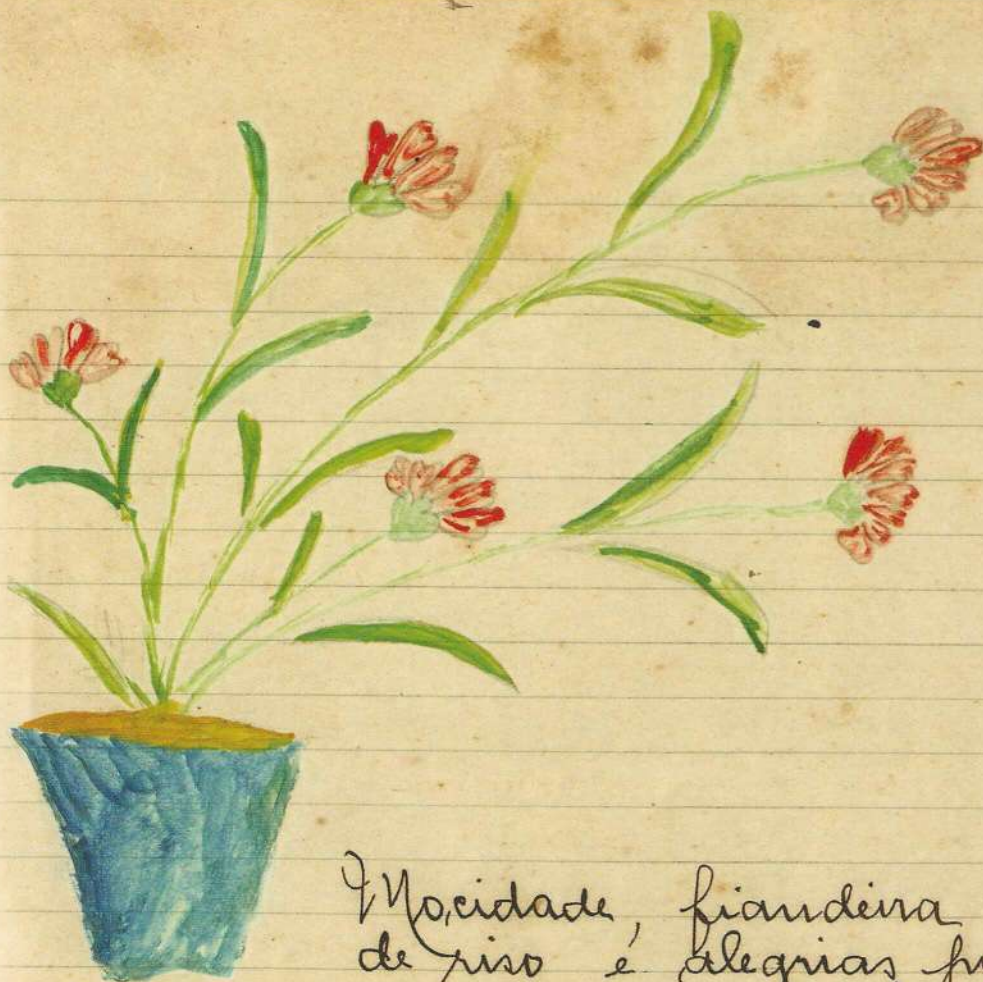 Mocidade, fiandeira
de riso e alegrias